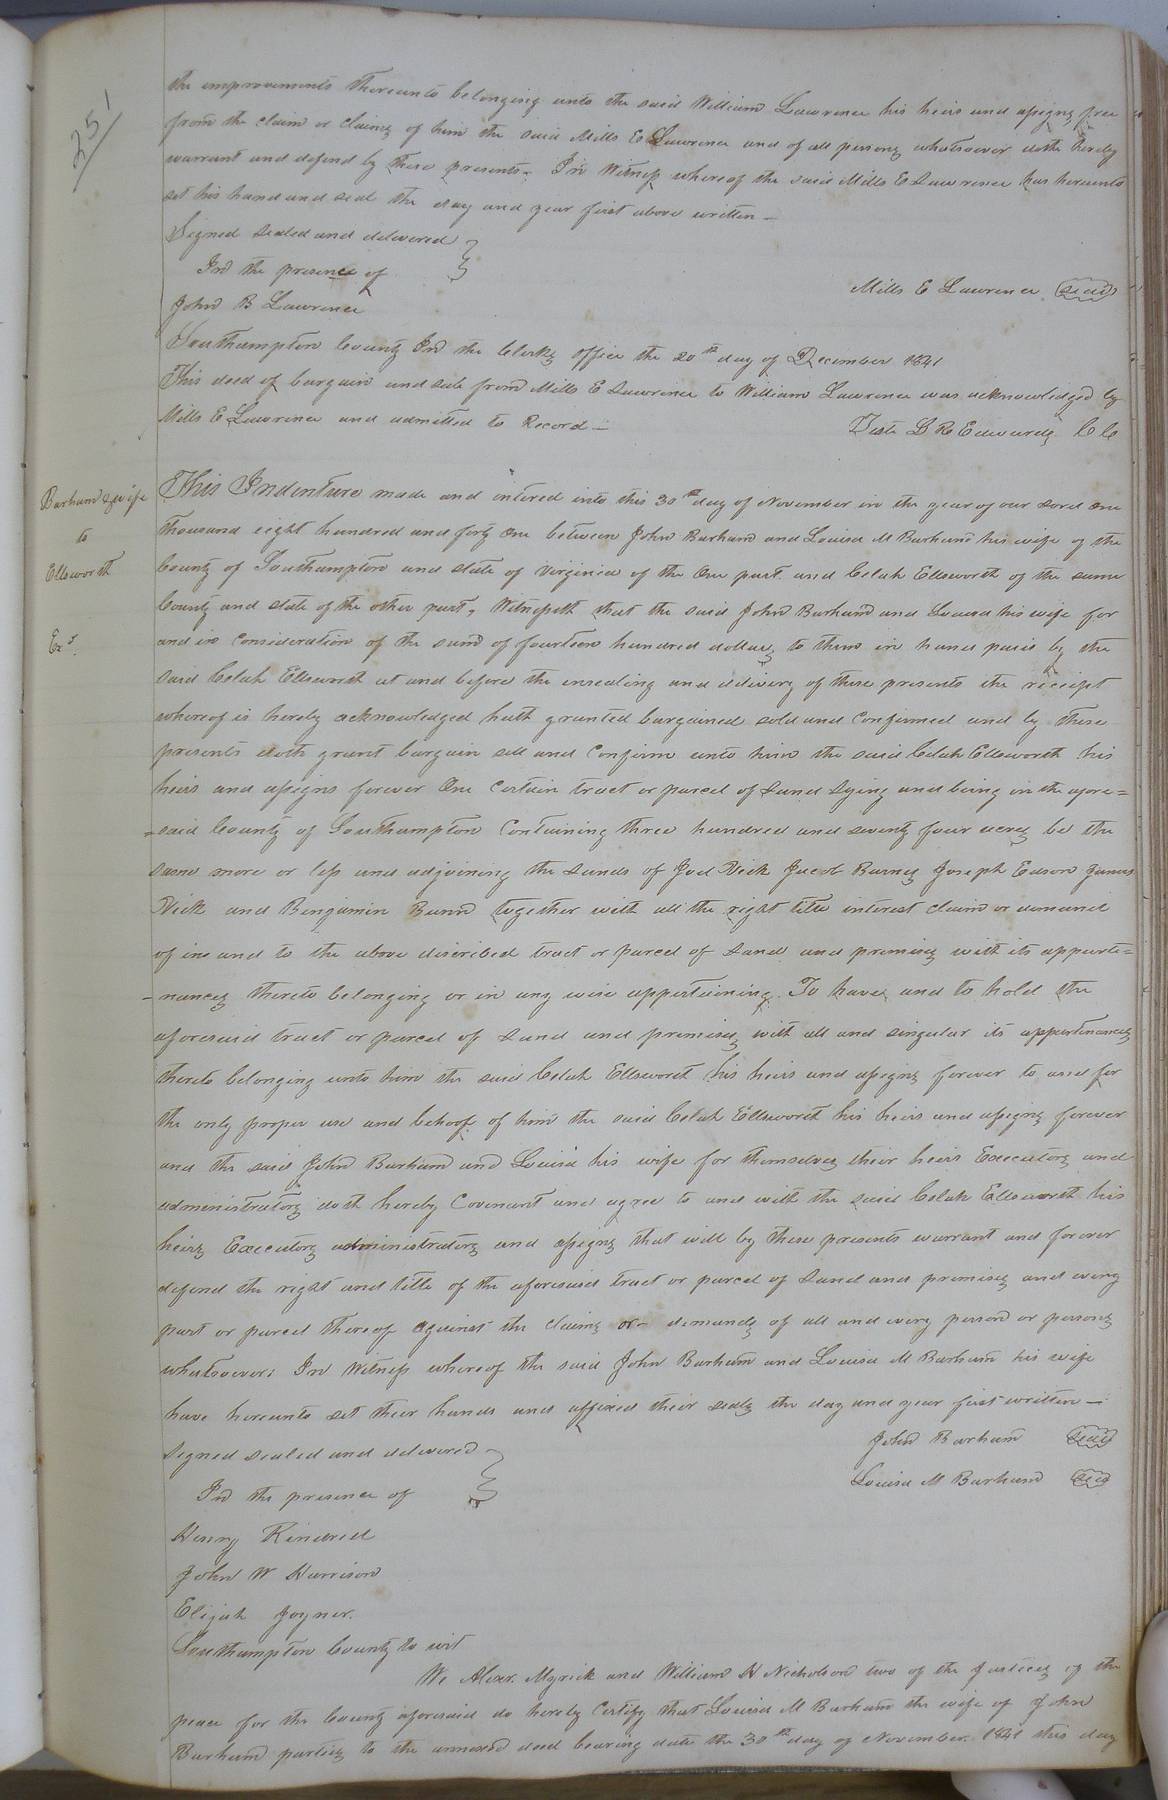 251
the improvements thereunto belonging unto the said William Lawrence his heirs and assigns free
from the claim or claims of him the said Mills E Lawrence and of all persons whatsoever doth hereby
warrant and defend by these presents. In Witness whereof the said Mills E Lawrence has hereunto
set his hand and seal the day and year first above written —
Signed Sealed and delivered
In the presence of
Mills E Lawrence Seal
John B Lawrence
Southampton County In the Clerks office the 20th day of December 1841
This deed of bargain and sale from Mills E Lawrence to William Lawrence was acknowledged by
Mills E Lawrence and admitted to Record —
Teste L R Edwards CC
Barham & wife
to
Ellsworth
Exd.
This Indenture made and intered into this 30th day of November in the year of our Lord One
thousand eight hundred and forty One between John Barham and Louisa M Barham his wife of the
County of Southampton and state of Virginia of the One part and Celah Ellsworth of the same
County and state of the other part, Witnesseth that the said John Barham and Louisa his wife for
and in Consideration of the sum of fourteen hundred dollars to them in hand paid by the
said Celah Ellsworth at and before the ensealing and delivery of these presents the receipt
whereof is hereby acknowledged hath granted bargained sold and Confirmed and by these
presents doth grant bargain sell and Confirm unto him the said Celah Ellsworth his
heirs and assigns forever One Certain tract or parcel of Land Lying and being in the afore=
=said County of Southampton Containing three hundred and seventy four acres be the
same more or less and adjoining the Lands of Joel Vick Jacob Barnes Joseph Eason James
Vick and Benjamin Bunn together with all the right title interest claim or demand
of in and to the above discribed tract or parcel of Land and premises with its apparte=
-nances thereto belonging or in any wise appertaining. To have and to hold the
aforesaid tract or parcel of Land and premises with all and singular its appertinances
thereto belonging unto him the said Celah Ellsworth his heirs and assigns forever to and for
the only proper use and behoof of him the said Celah Ellsworth his heirs and assigns forever
and the said John Barham and Louisa his wife for themselves their heirs Executors and
administrators doth hereby Covenant and agree to and with the said Celah Ellsworth his
heirs Executors administrators and assigns that will by these presents warrant and forever
defend the right and title of the aforesaid tract or parcel of Land and premises and every
part or parcel thereof against the claims or demands of all and every person or persons
whatsoever; In Witness whereof the said John Barham and Louisa M Barham his wife
have hereunto set their hands and affixed their seals the day and year first written —
Signed sealed and delivered
John Barham Seal
In the presence of
Louisa M Barham Seal
Henry Kindred
John W Harrison
Elijah Joyner.
Southampton County to wit
We Alexr. Myrick and William H Nicholson two of the Justices of the
peace for the County aforesaid do hereby Certify that Louisa M Barham the wife of John
Barham parties to the annexed deed bearing date the 30th day of November. 1841 this day